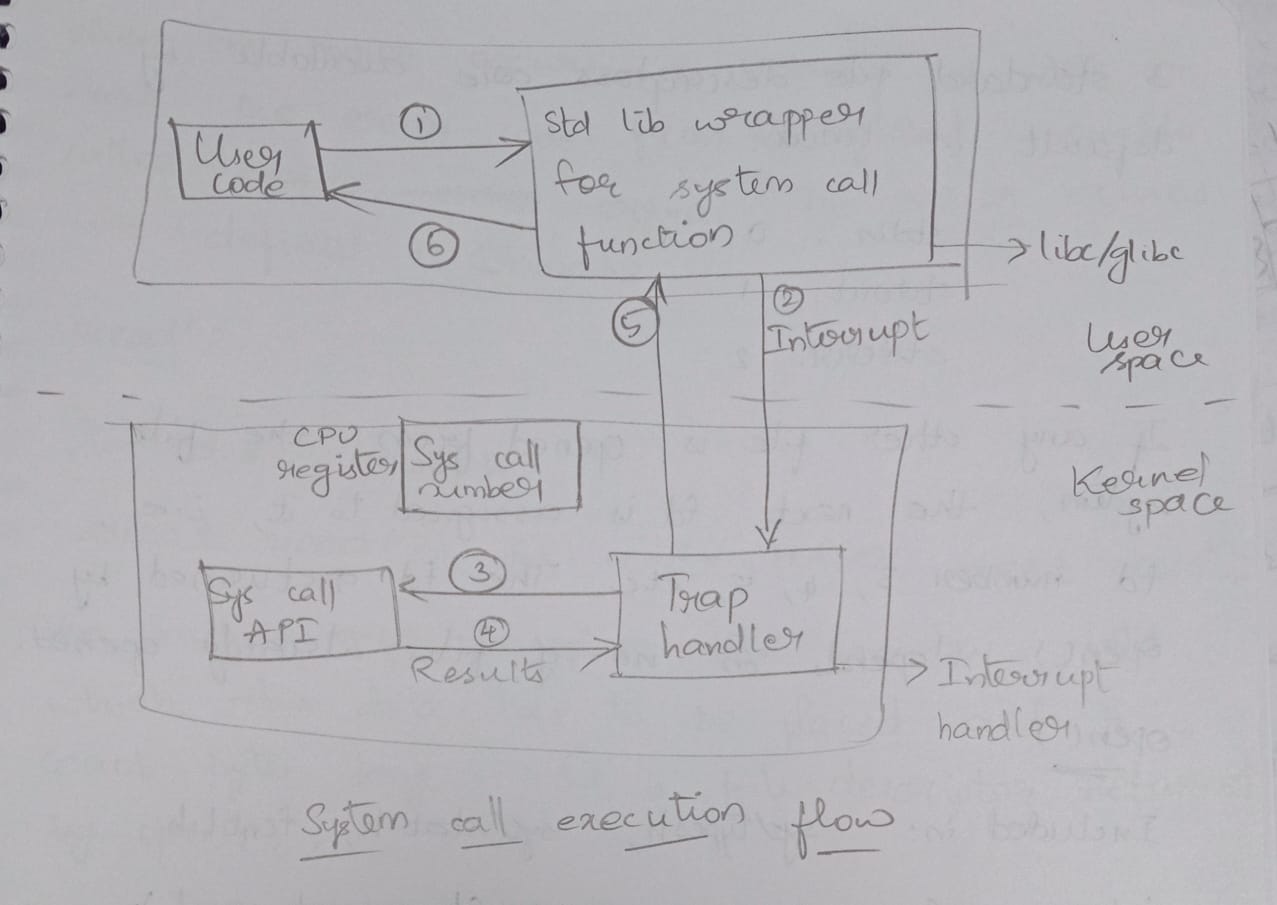 ①
User
code
std lib wrapper
for system call
function
⑥
libc/glibc
⑤
②
Interrupt
User
space
CPU
register
Sys call
number
Kernel
space
③
Sys call
API
④
Results
Trap
handler
Interrupt
handler
System call execution flow